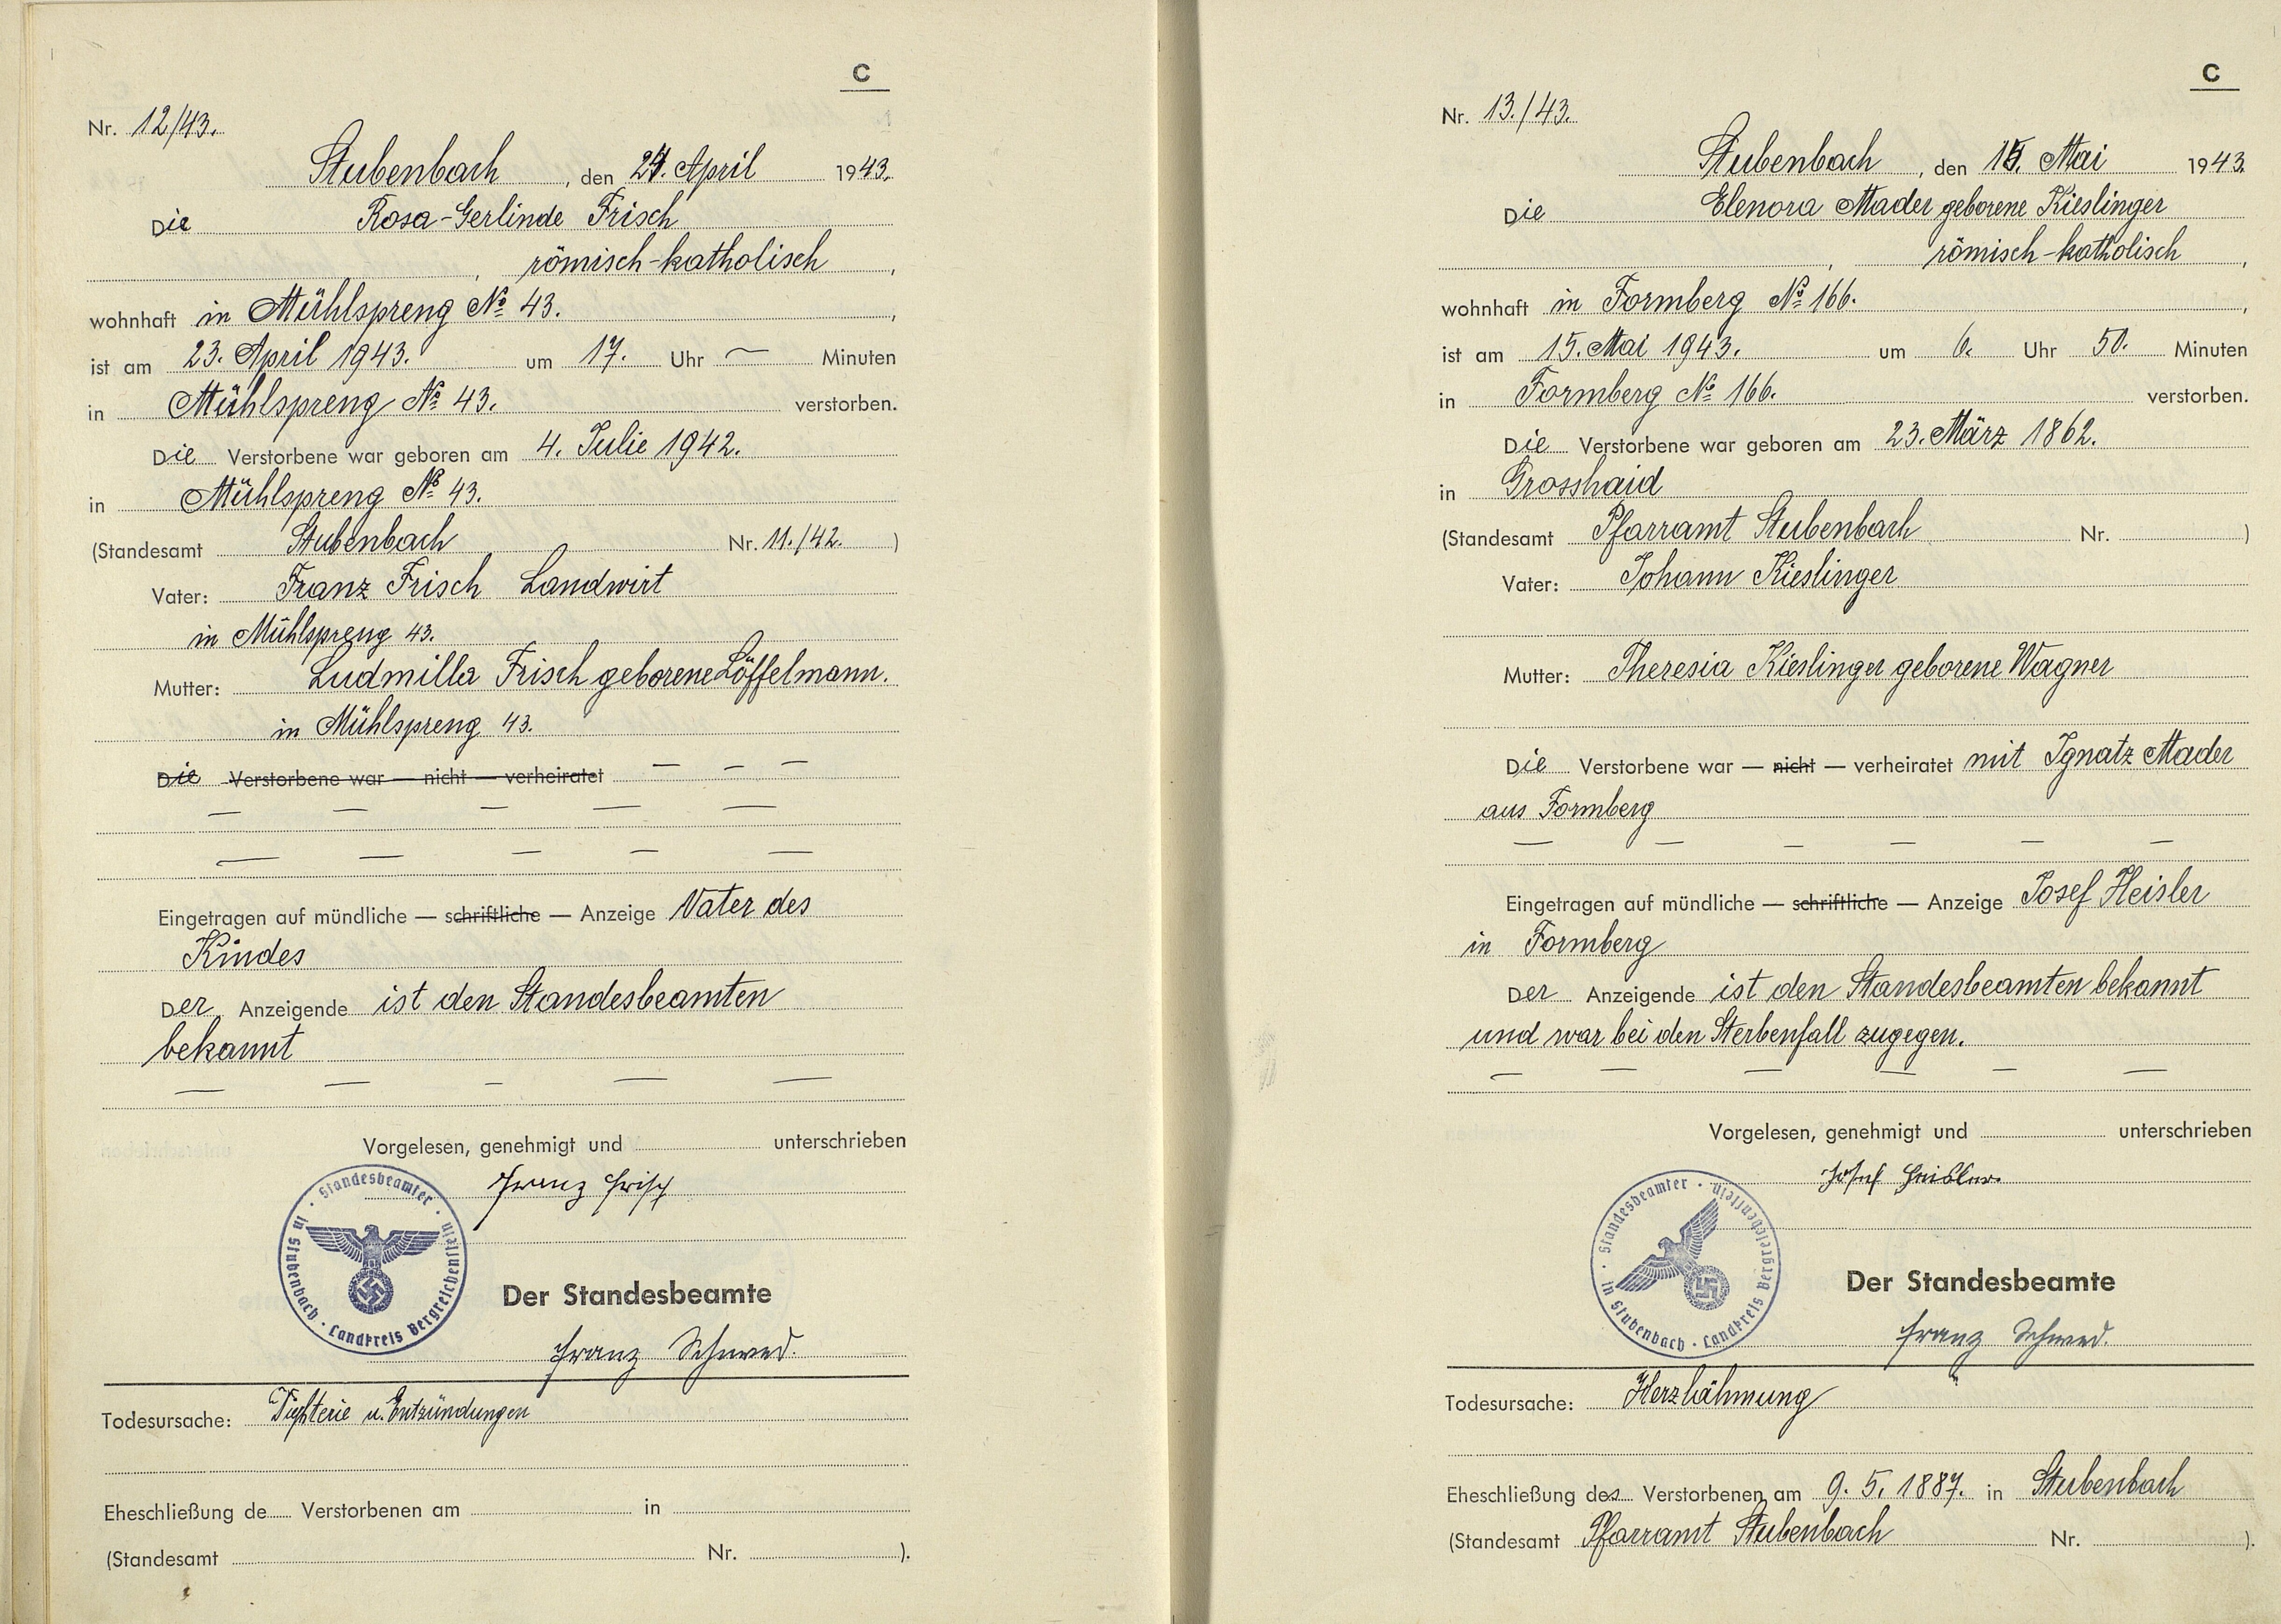 C
Nr. 12/43.
Stubenbach, den 24. April 1943.
Die Rosa-Gerlinde Frisch
, römisch-katholisch,
wohnhaft in Mühlspreng № 43.,
ist am 23. April 1943. um 17. Uhr — Minuten
in Mühlspreng № 43. verstorben.
Die Verstorbene war geboren am 4. Julie 1942.
in Mühlspreng № 43.
(Standesamt Stubenbach Nr. 11./42.)
Vater: Franz Frisch Landwirt
in Mühlspreng 43.
Mutter: Ludmilla Frisch geborene Löffelmann.
in Mühlspreng 43.
Die Verstorbene war — nicht — verheiratet — — —
— — — — —
— — — — —
Eingetragen auf mündliche — schriftliche — Anzeige Vater des
Kindes
Der Anzeigende ist den Standesbeamten
bekannt
— — — — —
Vorgelesen, genehmigt und unterschrieben
Franz Frisch
Standesbeamter · in Stubenbach · Landkreis Bergreichenstein ·
Der Standesbeamte
Franz Schwed.
Todesursache: u. Entzündungen
Eheschließung de Verstorbenen am in
(Standesamt Nr. ).
C
Nr. 13./43.
Stubenbach, den 15. Mai 1943.
Die Elenora Mader geborene Kieslinger
, römisch-katholisch,
wohnhaft in Formberg № 166.,
ist am 15. Mai 1943. um 6. Uhr 50. Minuten
in Formberg № 166. verstorben.
Die Verstorbene war geboren am 23. März 1862.
in Grosshaid
(Standesamt Pfarramt Stubenbach Nr. )
Vater: Johann Kieslinger
Mutter: Theresia Kieslinger geborene Wagner
Die Verstorbene war — nicht — verheiratet mit Ignatz Mader
aus Formberg
— — — — — —
Eingetragen auf mündliche — schriftliche — Anzeige Josef Heisler
in Formberg
Der Anzeigende ist den Standesbeamten bekannt
und war bei den Sterbenfall zugegen.
— — — — — —
Vorgelesen, genehmigt und unterschrieben
Josef Heisler.
Standesbeamter · in Stubenbach · Landkreis Bergreichenstein ·
Der Standesbeamte
Franz Schwed.
Todesursache: Herzlähmung
Eheschließung des Verstorbenen am 9. 5. 1887. in Stubenbach
(Standesamt Pfarramt Stubenbach Nr. ).